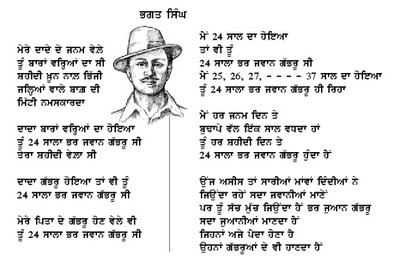 ਭਗਤ ਸਿੰਘ
ਮੇਰੇ ਦਾਦੇ ਦੇ ਜਨਮ ਵੇਲੇ
ਤੂੰ ਬਾਰਾਂ ਵਰ੍ਹਿਆਂ ਦਾ ਸੀ
ਸ਼ਹੀਦੀ ਖ਼ੂਨ ਨਾਲ਼ ਭਿੱਜੀ
ਜਲ੍ਹਿਆਂ ਵਾਲੇ ਬਾਗ਼ ਦੀ
ਮਿੱਟੀ ਨਮਸਕਾਰਦਾ
ਦਾਦਾ ਬਾਰਾਂ ਵਰ੍ਹਿਆਂ ਦਾ ਹੋਇਆ
ਤੂੰ 24 ਸਾਲਾ ਭਰ ਜਵਾਨ ਗੱਭਰੂ ਸੀ
ਤੇਰਾ ਸ਼ਹੀਦੀ ਵੇਲਾ ਸੀ
ਦਾਦਾ ਗੱਭਰੂ ਹੋਇਆ ਤਾਂ ਵੀ ਤੂੰ
24 ਸਾਲਾ ਭਰ ਜਵਾਨ ਗੱਭਰੂ ਸੀ
ਮੇਰੇ ਪਿਤਾ ਦੇ ਗੱਭਰੂ ਹੋਣ ਵੇਲੇ ਵੀ
ਤੂੰ 24 ਸਾਲਾ ਭਰ ਜਵਾਨ ਗੱਭਰੂ ਸੀ
ਮੈਂ 24 ਸਾਲ ਦਾ ਹੋਇਆ
ਤਾਂ ਵੀ ਤੂੰ
24 ਸਾਲਾ ਭਰ ਜਵਾਨ ਗੱਭਰੂ ਸੀ
ਮੈਂ 25, 26, 27, - - - - 37 ਸਾਲ ਦਾ ਹੋਇਆ
ਤੂੰ 24 ਸਾਲਾ ਭਰ ਜਵਾਨ ਗੱਭਰੂ ਹੀ ਰਿਹਾ
ਮੈਂ ਹਰ ਜਨਮ ਦਿਨ ਤੇ
ਬੁਢਾਪੇ ਵੱਲ ਇੱਕ ਸਾਲ ਵਧਦਾ ਹਾਂ
ਤੂੰ ਹਰ ਸ਼ਹੀਦੀ ਦਿਨ ਤੇ
24 ਸਾਲਾ ਭਰ ਜਵਾਨ ਗੱਭਰੂ ਹੁੰਦਾ ਹੈਂ
ਉਂਜ ਅਸੀਸ ਤਾਂ ਸਾਰੀਆਂ ਮਾਂਵਾਂ ਦਿੰਦੀਆਂ ਨੇ
ਜਿਉਂਦਾ ਰਹੇਂ ਸਦਾ ਜਵਾਨੀਆਂ ਮਾਣੇਂ
ਪਰ ਤੂੰ ਸੱਚ ਮੁੱਚ ਜਿਉਂਦਾ ਹੈਂ ਭਰ ਜੁਆਨ ਗੱਭਰੂ
ਸਦਾ ਜੁਆਨੀਆਂ ਮਾਣਦਾ ਹੈਂ
ਜਿਹਨਾਂ ਅਜੇ ਪੈਦਾ ਹੋਣਾ ਹੈ
ਉਹਨਾਂ ਗੱਭਰੂਆਂ ਦੇ ਵੀ ਹਾਣਦਾ ਹੈਂ